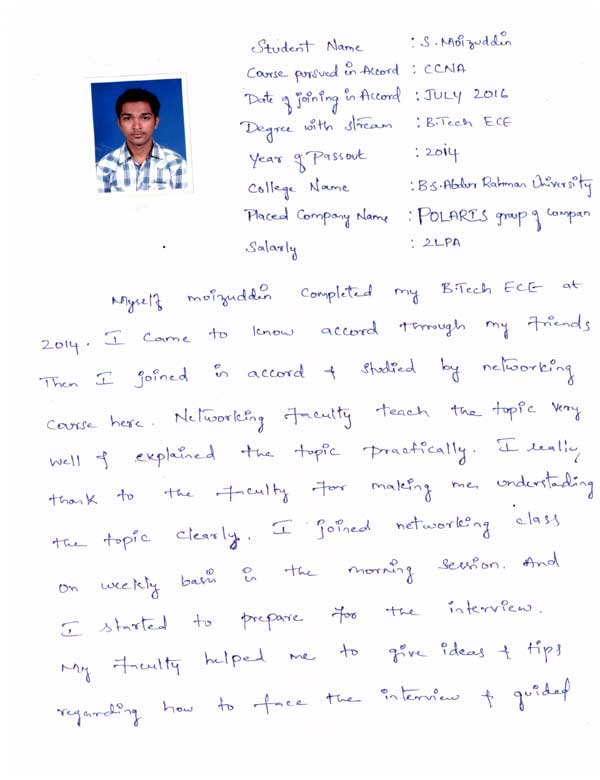 Student Name : S. Moizuddin
Course pursued in Accord : CCNA
Date of joining in Accord : JULY 2016
Degree with stream : B.Tech ECE
Year of Passout : 2014
College Name : B.S. Abdur Rahman University
Placed Company Name : POLARIS group of Compan
Salarly : 2LPA
Myself moizuddin completed my B.Tech ECE at
2014. I came to know accord through my friends
Then I joined in accord & studied by networking
course here. Networking Faculty teach the topic very
well & explained the topic practically. I really
thank to the faculty for making me understading
the topic clearly. I joined networking class
on weekly basis in the morning session. And
I started to prepare for the interview.
My faculty helped me to give ideas & tips
regarding how to face the interview & guided